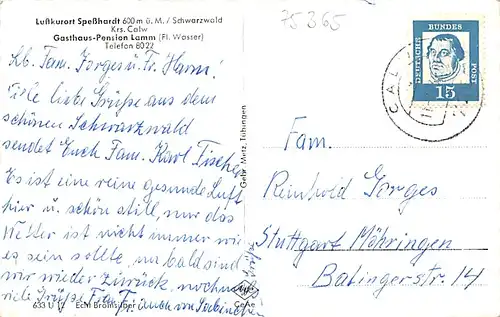 Luftkurort Speßhardt 600 m ü. M. / Schwarzwald
Krs. Calw
Gasthaus-Pension Lamm (Fl. Wasser)
Telefon 8022
Lb. Fam. Jorges u. Fr. Hanni!
Viele liebe Grüße aus dem
schönen Schwarzwald
sendet Euch Fam. Karl Fischer
Es ist eine reine gesunde Luft
hier u. schön still, nur das
Wetter ist nicht immer wie
es sein sollte, na bald sind
wir wieder zurück, nochmals
viele Grüße Fam. F. auch von
633 U 12 Echt Bromsilber
Gebr. Metz, Tübingen
GeAe
75365
DEUTSCHE BUNDESPOST
15
CALW
Fam.
Reinhold Jorges
Stuttgart Möhringen
Balingerstr. 14